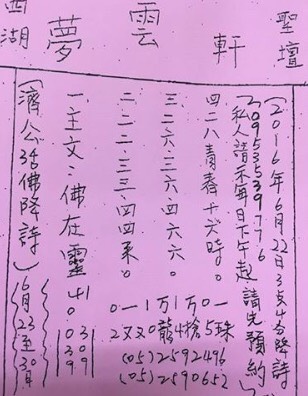 西湖 夢雲軒 聖壇
（2016年6月22日3支4夯降詩）
0953539776
（私人請示每日下午起請先預約）
四二八青春十六時。
三二六、三六、四六六。
二二二、三三、四四來。
一、主文：佛在靈41。
（濟公活佛降詩）6月23至30月
0一1万1万0一
2又又0龍4槍5珠
（05）2592496
（05）2590652
03
30
99